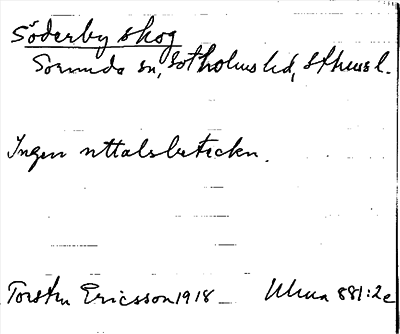 Söderby skog
Sorunda sn, Sotholms hd, Sthms l.
Ingen uttalsbeteckn.
Torsten Ericsson 1918 Ulma 881:2c